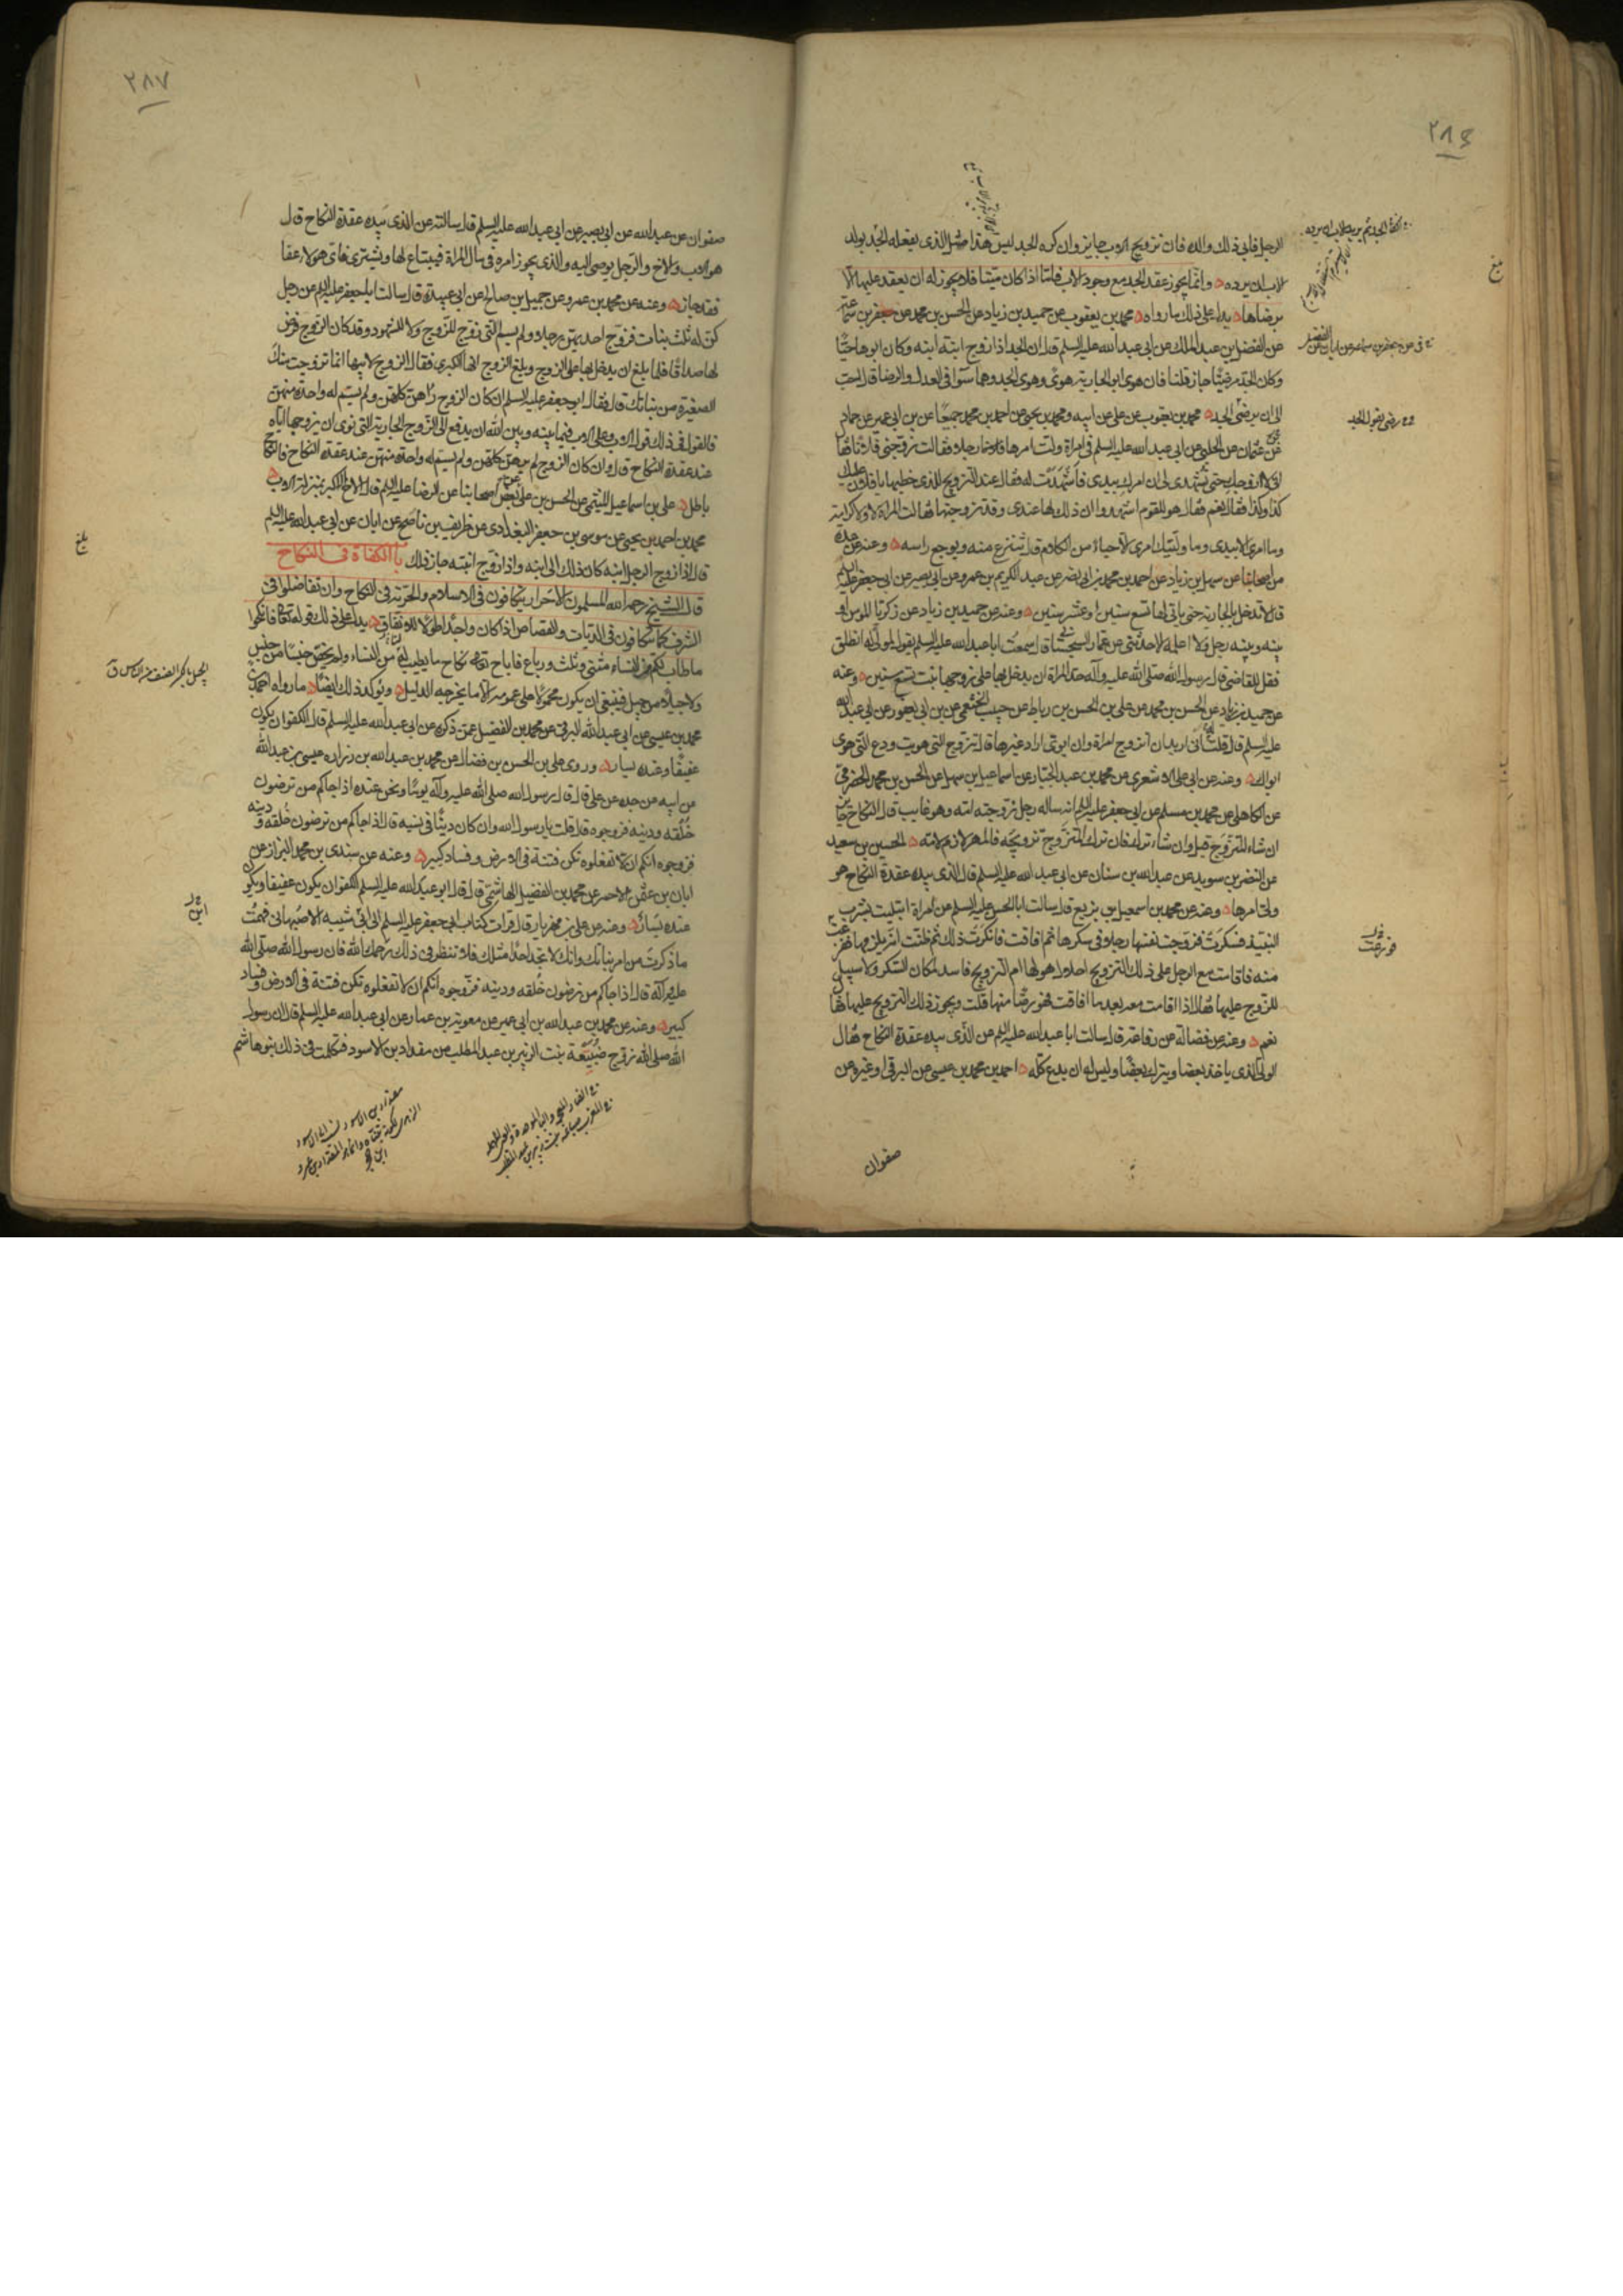 ٢٨٦
الرجل فابى ذلك والده فان تزويج الاب جايز وان كره الجد ليس هذا مثل الذى يفعله الجد يولد
لاب ان يرده وانما يجوز عقد الجد مع وجود الاب فامّا اذا كان ميتا فلا يجوز له ان يعقد عليها الا
برضاها يدل على ذلك ما رواه محمد بن يعقوب عن حميد بن زياد عن الحسن بن محمد عن جعفر بن سماعة
عن الفضل بن عبد الملك عن ابى عبد الله عليه السلم قال ان الجد اذا زوج ابنة ابنه وكان ابوها حيّا
وكان الجد مرضيّا جاز قلنا فان هوى ابو الجارية هوىً وهوى الجد وهما سوآ فى العدل والرضا قال احب
الىّ ان يرضى الجد محمد بن يعقوب عن على عن ابيه ومحمد بن يحيى عن احمد بن محمد جميعًا عن بن ابى عمير عن حماد
بن عثمان عن الحلبى عن ابى عبد الله عليه السلم فى امراة ولّت امرها رجلا فقالت زوجنى فلانا فقال
انى لا ازوجك حتى تشهدى لى ان امرك بيدى فاشهدت له فقال عند التزويج للذى خطبها يا فلان عليك
كذا وكذا فقال نعم فقال هو للقوم اشهدوا ان ذلك لها عندى وقد زوجتها فقالت المراة لا ولا كرامة
وما امرى الا بيدى وما وليتك امرى الا حياءً من الكلام قال تنزع منه ويوجع راسه وعنه عن عدة
من اصحابنا عن سهل بن زياد عن احمد بن محمد بن ابى نصر عن عبد الكريم بن عمرو عن ابى بصير عن ابى جعفر عليه السلم
قال لا تدخل بالجارية حتى ياتى لها تسع سنين او عشر سنين وعنه عن حميد بن زياد عن زكريا المومن او
بينه وبينه رجل ولا اعلمه الا حدثنى عن عمار السجستانى قال سمعت ابا عبد الله عليه السلم يقول لمولى له انطلق
فقل للقاضى قال رسول الله صلى الله عليه وآله حد المراة ان يدخل بها على زوجها بنت تسع سنين وعنه
عن حميد بن زياد عن الحسن بن محمد عن على بن الحسن بن رباط عن حبيب الخثعمى عن بن ابى يعفور عن ابى عبد الله
عليه السلم قال قلت انى اريد ان اتزوج امراة وان ابوىّ ارادا غيرها قال تزوج التى هويت ودع التى هوى
ابواك وعنه عن ابى على الاشعرى عن محمد بن عبد الجبار عن اسماعيل بن سهل عن الحسن بن محمد الحضرمى
عن الكاهلى عن محمد بن مسلم عن ابى جعفر عليه السلم انه ساله رجل زوجته امه وهو غايب قال النكاح جايز
ان شاء المتزوج قبل وان شاء ترك فان ترك المتزوج تزويجه فالمهر لازم لامه الحسين بن سعيد
عن النضر بن سويد عن عبد الله بن سنان عن ابى عبد الله عليه السلم قال الذى بيده عقدة النكاح هو
ولى امرها وعنه عن محمد بن اسمعيل بن بزيع قال سالت ابا الحسن عليه السلم عن امراة ابتليت بشرب
النبيذ فسكرت فزوجت نفسها رجلا فى سكرها ثم افاقت فانكرت ذلك ثم ظنت انه يلزمها ففزعت
منه فاقامت مع الرجل على ذلك التزويج احلال هو لها ام التزويج فاسد لمكان السكر ولا سبيل
للزوج عليها فقال اذا اقامت معه بعد ما افاقت فهو رضًا منها قلت ويجوز ذلك التزويج عليها فقال
نعم وعنه عن فضالة عن رفاعة قال سالت ابا عبد الله عليه السلم عن الذى بيده عقدة النكاح فقال
الولى الذى ياخذ بعضا ويترك بعضًا وليس له ان يدع كله احمد بن محمد بن عيسى عن البرقى او غيره عن
صفوان
بلغ
٢٨٧
صفوان عن عبد الله عن ابى بصير عن ابى عبد الله عليه السلم قال سالته عن الذى بيده عقدة النكاح قال
هو الاب والاخ والرجل يوصى اليه والذى يجوز امره فى مال المراة فيبتاع لها ويشترى فاىّ هولاء عفا
فقد جاز وعنه عن محمد بن عمرو عن جميل بن صالح عن ابى عبيدة قال سالت ابا جعفر عليه السلم عن رجل
كنّ له ثلث بنات فزوج احديهن رجلا ولم يسم التى زوج للزوج ولا للشهود وقد كان الزوج فرض
لها صداقًا فلما بلغ ان يدخل بها على الزوج وبلغ الزوج انها الكبرى فقال الزوج لابيها انما تزوجت منك
الصغيرة من بناتك قال فقال ابو جعفر عليه السلم ان كان الزوج راهن كلهن ولم يسم له واحدة منهن
فالقول فى ذلك قول الاب وعلى الاب فيما بينه وبين الله ان يدفع الى الزوج الجارية التى نوى ان يزوجها اياه
عند عقدة النكاح قال وان كان الزوج لم يرهن كلهن ولم يسم له واحدة منهن عند عقدة النكاح فالنكاح
باطل على بن اسماعيل الميثمى عن الحسن بن على عن بعض اصحابنا عن الرضا عليه السلم قال الاخ الاكبر بمنزلة الاب
محمد بن احمد بن يحيى عن موسى بن جعفر البغدادى عن ظريف بن ناصح عن ابان عن ابى عبد الله عليه السلم
قال اذا زوج الرجل ابنه كان ذلك الى ابنه واذا زوج ابنته جاز ذلك باب الكفاة فى النكاح
قال الشيخ رحمه الله المسلمون الاحرار يتكافون فى الاسلام والحرية فى النكاح وان تفاضلوا فى
الشرف كما يتكافون فى الديات والقصاص اذا كان واجدا طولا للانفاق يدل على ذلك قوله تعالى فانكحوا
ما طاب لكم من النساء مثنى وثلث ورباع فاباح تعالى نكاح ما يطيب لنا من النساء ولم يخص جنسًا من جنس
ولا جيلاً من جيل فينبغى ان يكون محمولا على عمومه الا ما يخرجه الدليل ويوكد ذلك ايضًا ما رواه احمد بن
محمد بن عيسى عن ابى عبد الله البرقى عن محمد بن الفضيل عمن ذكره عن ابى عبد الله عليه السلم قال الكفو ان يكون
عفيفًا وعنده يسار وروى على بن الحسن بن فضال عن محمد بن عبد الله بن زرارة عن عيسى بن عبد الله
عن ابيه عن جده عن على قال قال رسول الله صلى الله عليه وآله يومًا ونحن عنده اذا جاكم من ترضون
خُلُقه ودينه فزوجوه قال قلت يا رسول الله وان كان دنيّا فى نسبه قال اذا جاكم من ترضون خُلقه ودينه
فزوجوه انكم الا تفعلوه تكن فتنة فى الارض وفساد كبير وعنه عن سندى بن محمد البزاز عن
ابان بن عثمن الاحمر عن محمد بن الفضيل الهاشمى قال قال ابو عبد الله عليه السلم الكفو ان يكون عفيفا ويكون
عنده يسار وعنه عن على بن مهزيار قال قرات كتاب ابى جعفر عليه السلم الى ابى شيبه الاصبهانى فهمت
ما ذكرت من امر بناتك وانك لا تجد احدا مثلك فلا تنظر فى ذلك رحمك الله فان رسول الله صلى الله
عليه وآله قال اذا جاكم من ترضون خُلقه ودينه فزوجوه انكم ان لا تفعلوه تكن فتنة فى الارض وفساد
كبير وعنه عن محمد بن عبد الله بن ابى عمير عن معوية بن عمار عن ابى عبد الله عليه السلم قال ان رسول
الله صلى الله زوج ضُبيعة بنت الزبير بن عبد المطلب من مقداد بن الاسود فتكلمت فى ذلك بنو هاشم
بلغ